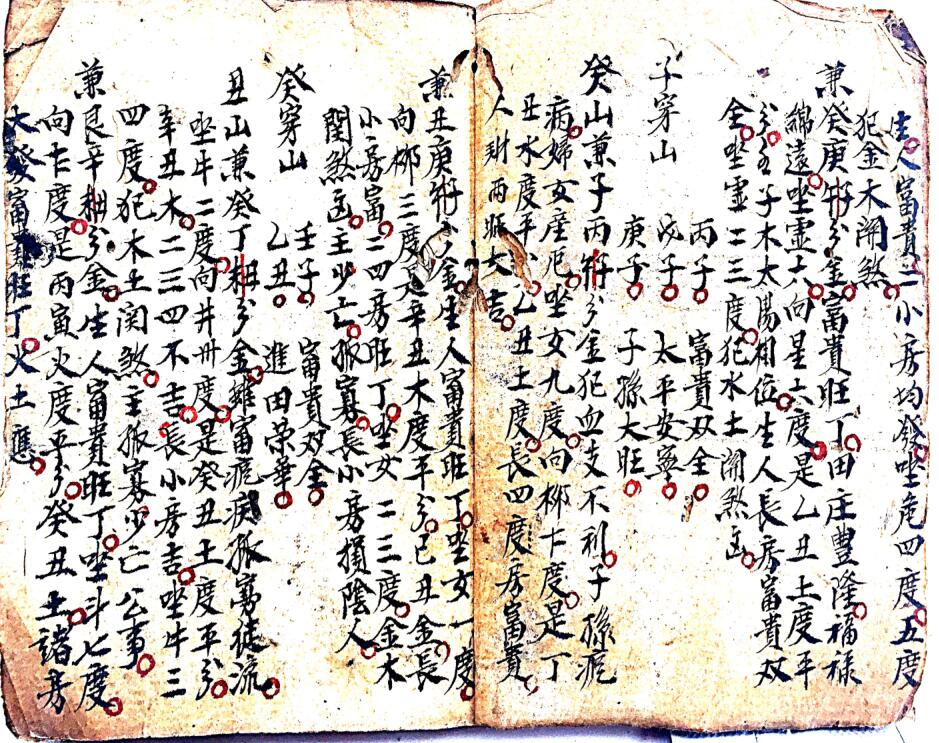 生人富貴二小房均發坐危四度五度
犯金木關煞
兼癸庚子分金富貴旺丁田庄豐隆福禄
綿遠坐虛六向星六度是乙丑土度平
分壬子木太陽相位生人長房富貴双
全坐虛二三度犯水土關煞凶
子穿山
丙子 富貴双全
戊子 太平安寧
庚子 子孫大旺
癸山兼子丙子分金犯血支不利子孫瘋
病婦女産厄坐女九度向柳七度是丁
丑水度平分乙丑土度長四度房富貴
人財两旺大吉
兼丑庚子分金生人富貴旺丁坐女一度
向柳三度是辛丑木度平分己丑金長
小房富二四房旺丁坐女二三度金木
関煞凶主少亡孤寡長小房損陰人
癸穿山
壬子 富貴双全
乙丑 進田榮華
丑山兼癸丁丑分金雖富瘋疾孤寡徒流
坐牛二度向井卅度是癸丑土度平分
辛丑木二三四不吉長小房吉坐牛三
四度犯木土関煞主孤寡少亡公事
兼艮辛丑分金生人富貴旺丁坐斗七度
向七度是丙寅火度平分癸丑土諸房
大發富貴旺丁火土應